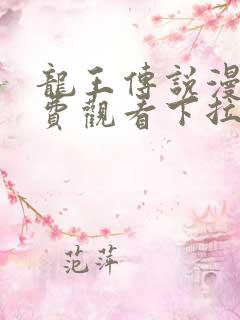 龍王傳說漫
費觀看下拉
范萍